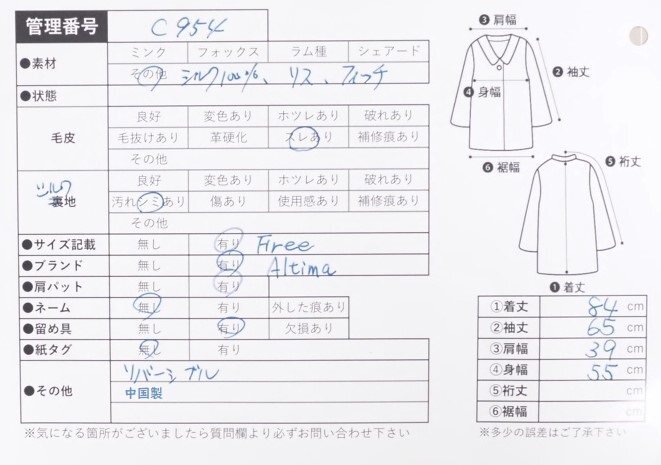 管理番号 C954
●素材 ミンク フォックス ラム種 シェアード
その他 シルク100%、リス、フィッチ
●状態
毛皮 良好 変色あり ホツレあり 破れあり
毛抜けあり 革硬化 スレあり 補修痕あり
その他
シルク
裏地 良好 変色あり ホツレあり 破れあり
汚れシミあり 傷あり 使用感あり 補修痕あり
その他
●サイズ記載 無し 有り Free
●ブランド 無し 有り Altima
●肩パット 無し 有り
●ネーム 無し 有り 外した痕あり
●留め具 無し 有り 欠損あり
●紙タグ 無し 有り
●その他 リバーシブル
中国製
※気になる箇所がございましたら質問欄より必ずお問い合わせ下さい
❸肩幅
❷袖丈
❹身幅
❻裾幅
❺裄丈
❶着丈
①着丈 84 cm
②袖丈 65 cm
③肩幅 39 cm
④身幅 55 cm
⑤裄丈 cm
⑥裾幅 cm
※多少の誤差はご了承下さい